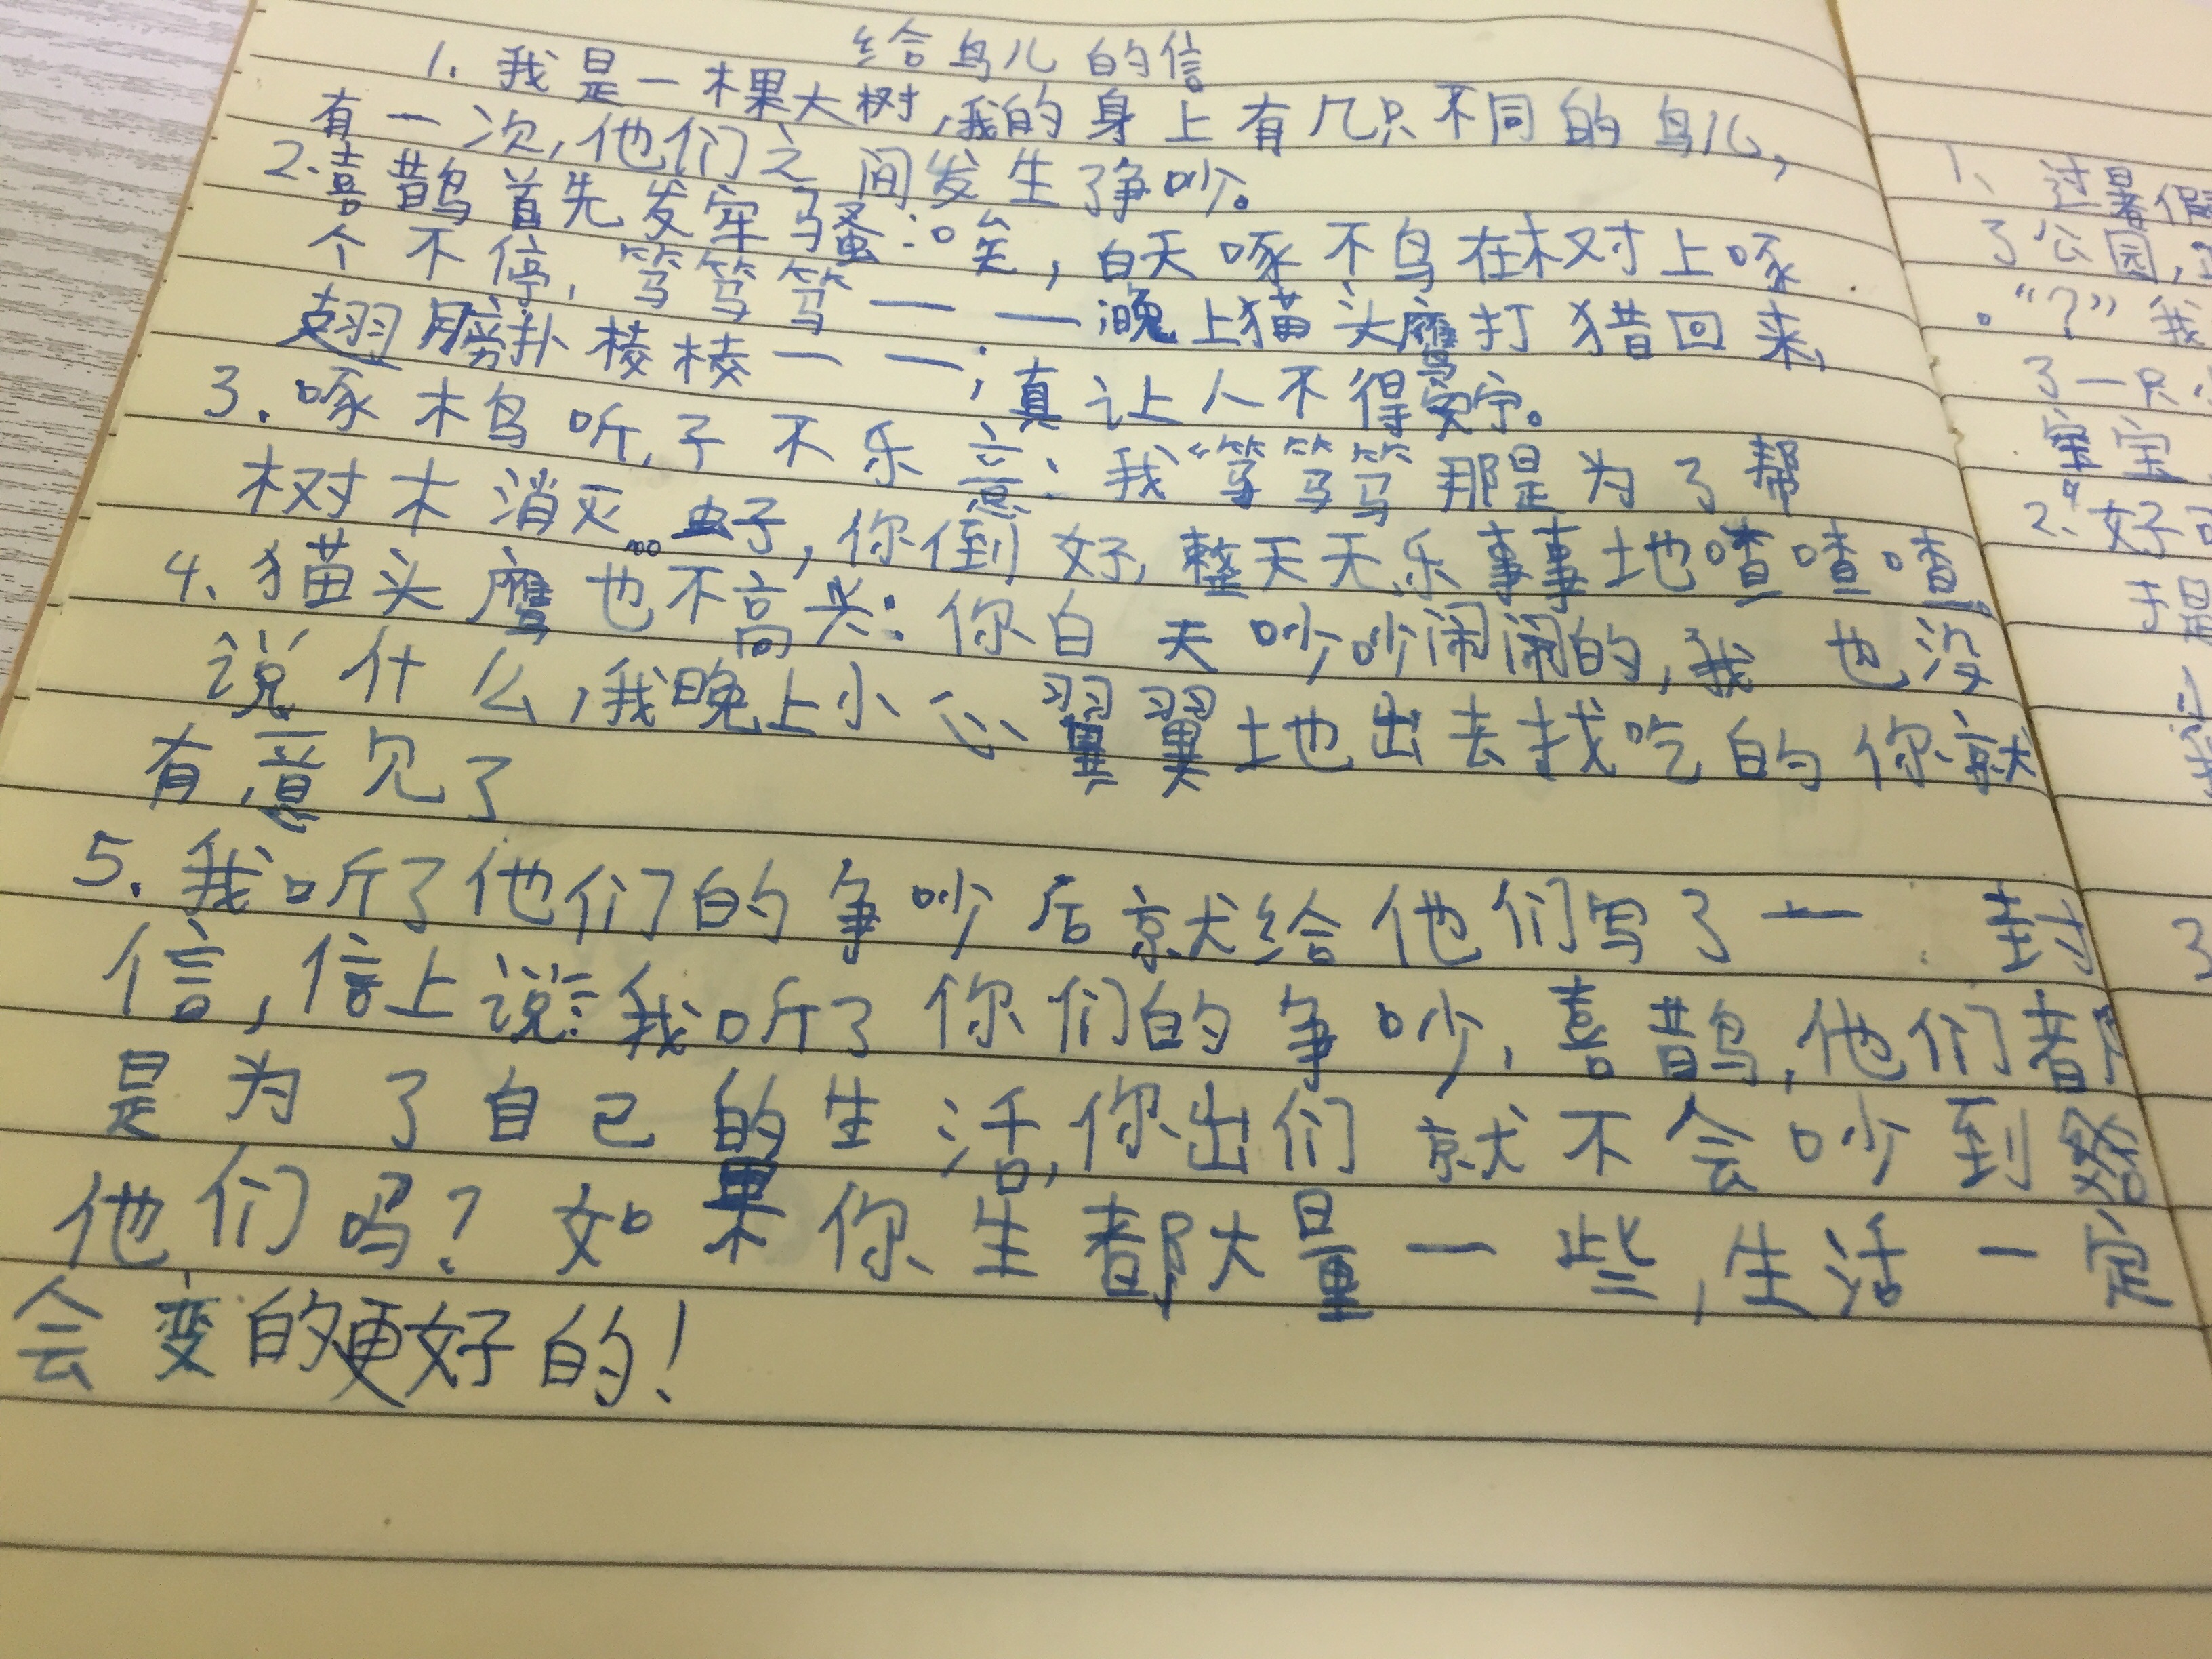 给鸟儿的信
1. 我是一棵大树,我的身上有几只不同的鸟儿,
有一次,他们之间发生了争吵。
2. 喜鹊首先发牢骚:唉,白天啄不鸟在树上啄
个不停,笃笃笃——晚上猫头鹰打猎回来,
翅膀扑棱棱——,真让人不得安宁。
3. 啄木鸟听了不乐意:我“笃笃笃”那是为了帮
树木消灭虫子,你倒好,整天无乐事事地喳喳喳,
4. 猫头鹰也不高兴:你白天吵吵闹闹的,我也没
说什么,我晚上小心翼翼地出去找吃的你就
有意见了
5. 我听了他们的争吵后就给他们写了一封
信,信上说:我听了你们的争吵,喜鹊,他们都
是为了自己的生活,你出们就不会吵到
他们吗?如果你生都大量一些,生活一定
会变的更好的!
1、过暑假
了公园,
。“?”我
了一只
宝宝
2.“好可